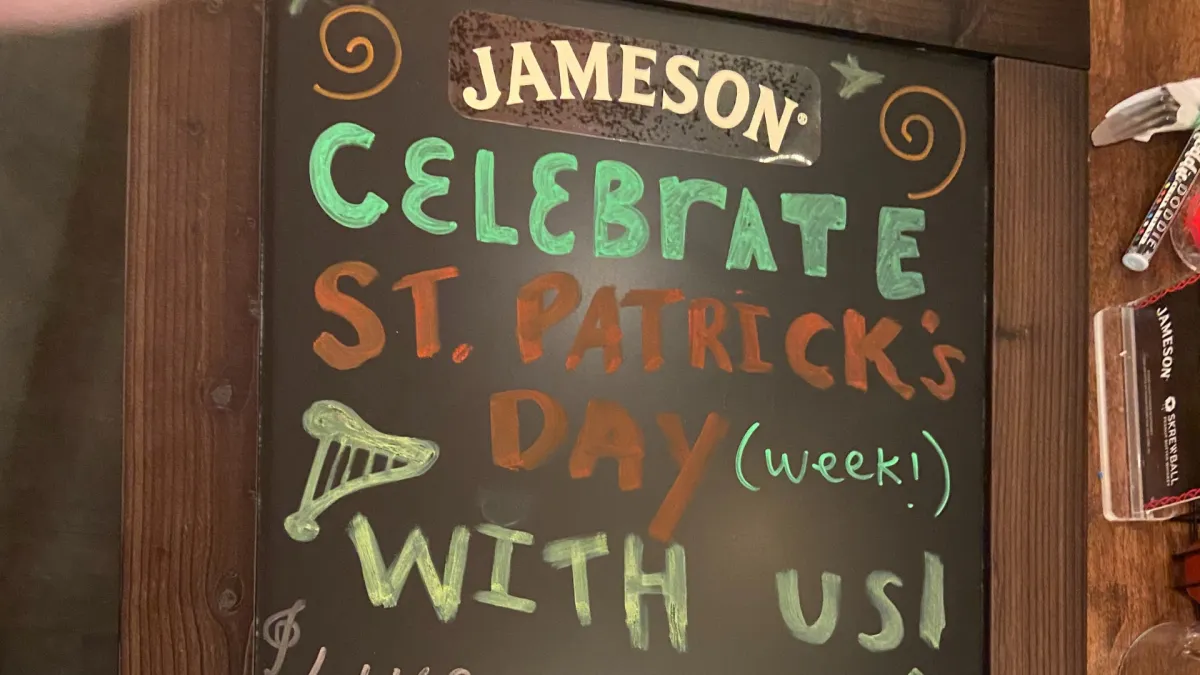 JAMESON®
CELEBRATE
ST. PATRICK'S
DAY (week!)
WITH US!
JAMESON
SKREWBALL